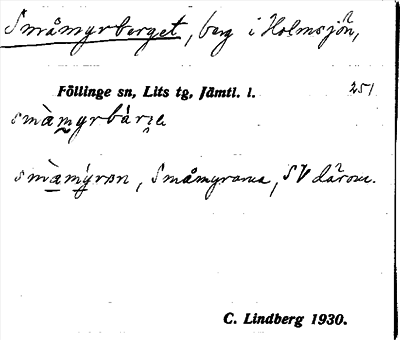 Småmyrberget, berg i Holmsjön,
Föllinge sn, Lits tg, Jämtl. l. 251
smàmyrbárʒe
smàmýrøn, Småmyrarna, SV därom.
C. Lindberg 1930.